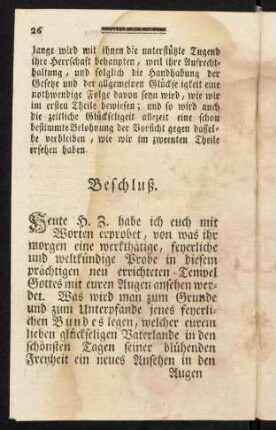 26
lange wird mit ihnen die unterstützte Tugend
ihre Herrschaft behaupten, weil ihre Aufrecht-
haltung, und folglich die Handhabung der
Gesetz und der allgemeinen Glückseligkeit eine
nothwendige Folge davon seyn wird, wie wir
im ersten Theile bewiesen; und so wird auch
die zeitliche Glückseligkeit allezeit eine schon
bestimmte Belohnung der Vorsicht gegen dassel-
be verbleiben, wie wir im zweenten Theile
ersehen haben.
Beschluß.
Heute H. Z. habe ich euch mit
Worten erprobet, von was ihr
morgen eine werkthätige, feyerliche
und weltkündige Probe in diesem
prächtigen neu errichteten Tempel
Gottes mit euren Augen ansehen wer-
det. Was wird man zum Grunde
und zum Unterpfande jenes feyerli-
chen Bundes legen, welcher eurem
lieben glückseligen Vaterlande in den
schönsten Tagen seiner blühenden
Freyheit ein neues Ansehen in den
Augen